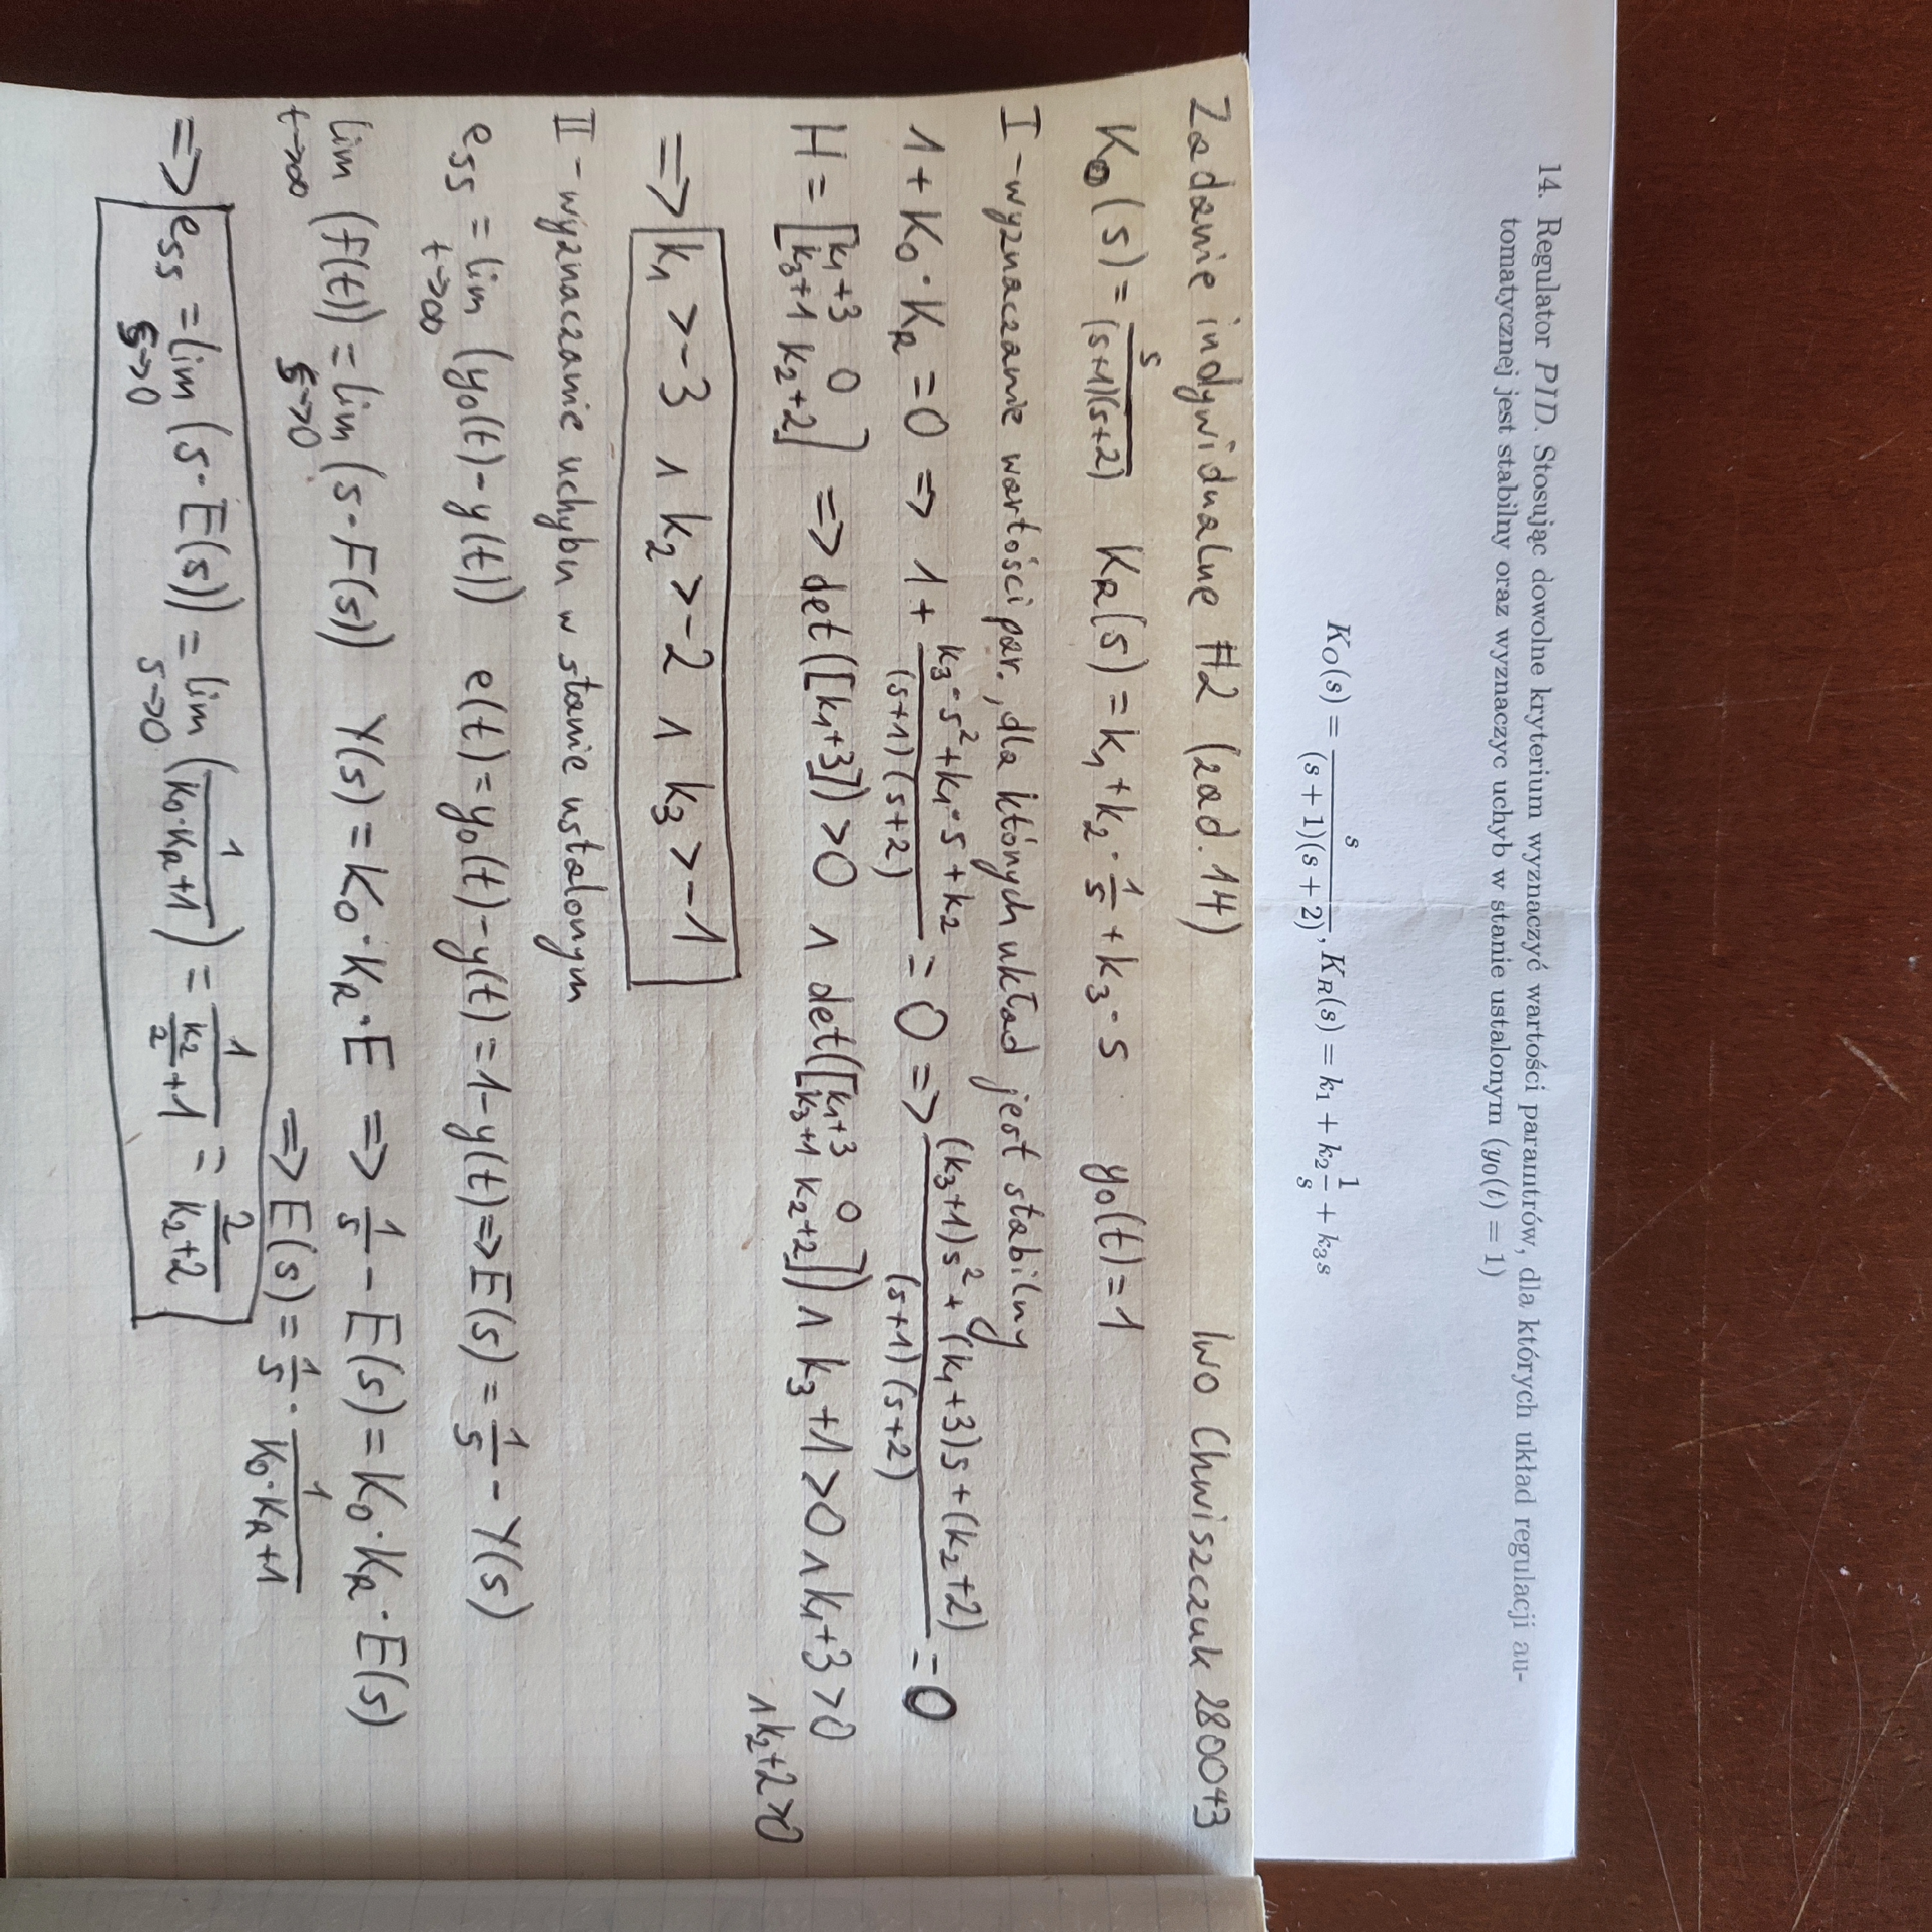 14. Regulator PID. Stosując dowolne kryterium wyznaczyć wartości paramtrów, dla których układ regulacji au-
tomatycznej jest stabilny oraz wyznaczyc uchyb w stanie ustalonym (y₀(t) = 1)
K_O(s) = s/((s + 1)(s + 2)), K_R(s) = k₁ + k₂ 1/s + k₃s
Zadanie indywidualne #2 (zad. 14) Iwo Chwiszczuk 280043
K_O(s) = s/((s+1)(s+2)) K_R(s) = k₁ + k₂ · 1/s + k₃ · s y₀(t) = 1
I - wyznaczanie wartości par., dla których układ jest stabilny
1 + K_O · K_R = 0 => 1 + (k₃·s² + k₁·s + k₂)/((s+1)(s+2)) = 0 => ((k₃+1)s² + (k₁+3)s + (k₂+2))/((s+1)(s+2)) = 0
H = [k₁+3 0; k₃+1 k₂+2] => det([k₁+3]) > 0 ∧ det([k₁+3 0; k₃+1 k₂+2]) ∧ k₃+1 > 0 ∧ k₁+3 > 0
∧ k₂+2 > 0
=> k₁ > -3 ∧ k₂ > -2 ∧ k₃ > -1
II - wyznaczanie uchybu w stanie ustalonym
e_ss = lim t->∞ (y₀(t) - y(t)) e(t) = y₀(t) - y(t) = 1 - y(t) => E(s) = 1/s - Y(s)
lim t->∞ (f(t)) = lim s->0 (s · F(s)) Y(s) = K_O · K_R · E => 1/s - E(s) = K_O · K_R · E(s)
=> E(s) = 1/s · 1/(K_O · K_R + 1)
=> e_ss = lim s->0 (s · E(s)) = lim s->0 (1/(K_O · K_R + 1)) = 1/(k₂/2 + 1) = 2/(k₂+2)